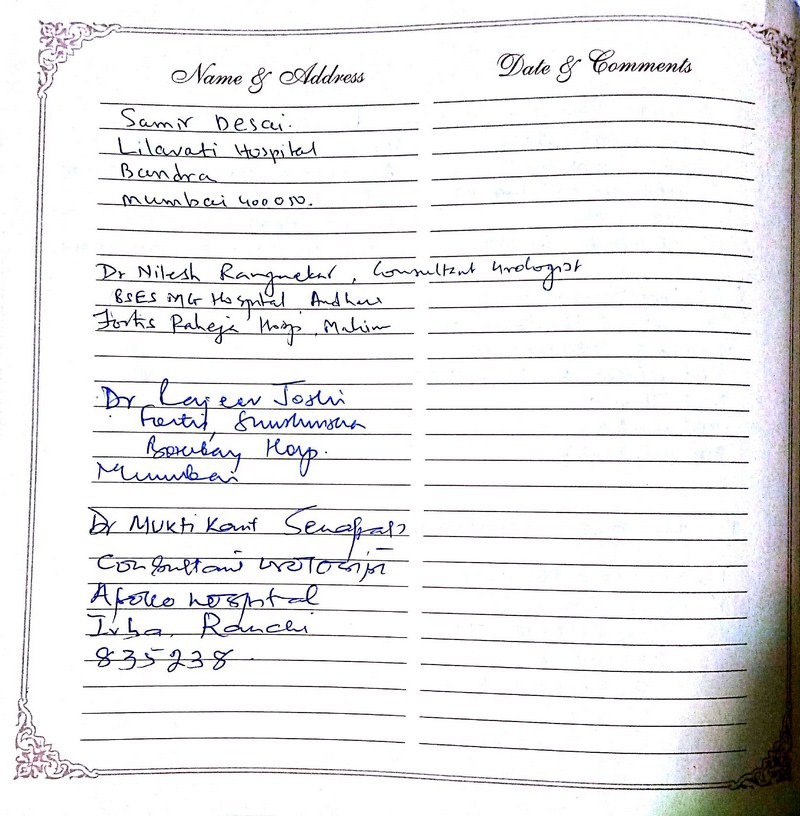 Name & Address
Date & Comments
Samir Desai.
Lilavati Hospital
Bandra
Mumbai 400050.
Dr Nilesh Rangnekar, Consultant Urologist
BSES MG Hospital, Andheri
Fortis Raheja Hosp, Mahim
Dr Rajeev Joshi
Bombay Hosp.
Mumbai
Dr Mukti Kant Senapati
Consultant Urologist
Apollo Hospital
Irba, Ranchi
835238.